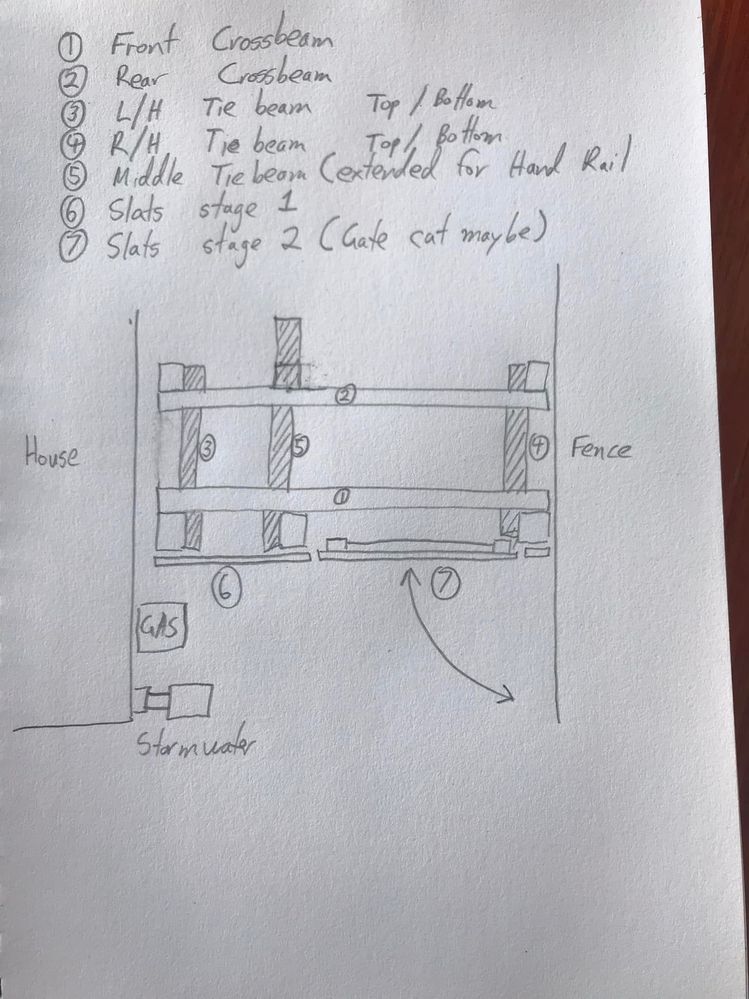 ① Front Crossbeam
② Rear Crossbeam
③ L/H Tie beam Top / Bottom
④ R/H Tie beam Top / Bottom
⑤ Middle Tie beam (extended for Hand Rail
⑥ Slats stage 1
⑦ Slats stage 2 (Gate cat maybe)
②
House ③ ⑤ ④ Fence
①
⑥ ⑦
GAS
Stormwater